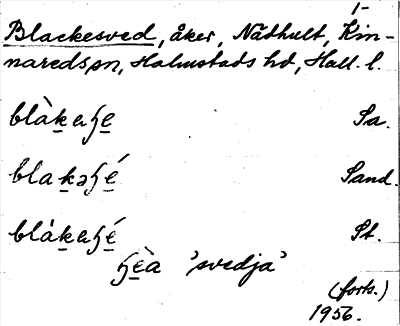 1-
Blackesved, åker, Nådhult, Kin-
naredspn, Halmstads hd, Hall. l.
blàkaɧe Sa.
blakəɧé Sand.
blákaɧé St.
ɧèa 'svedja'
(forts.)
1956.